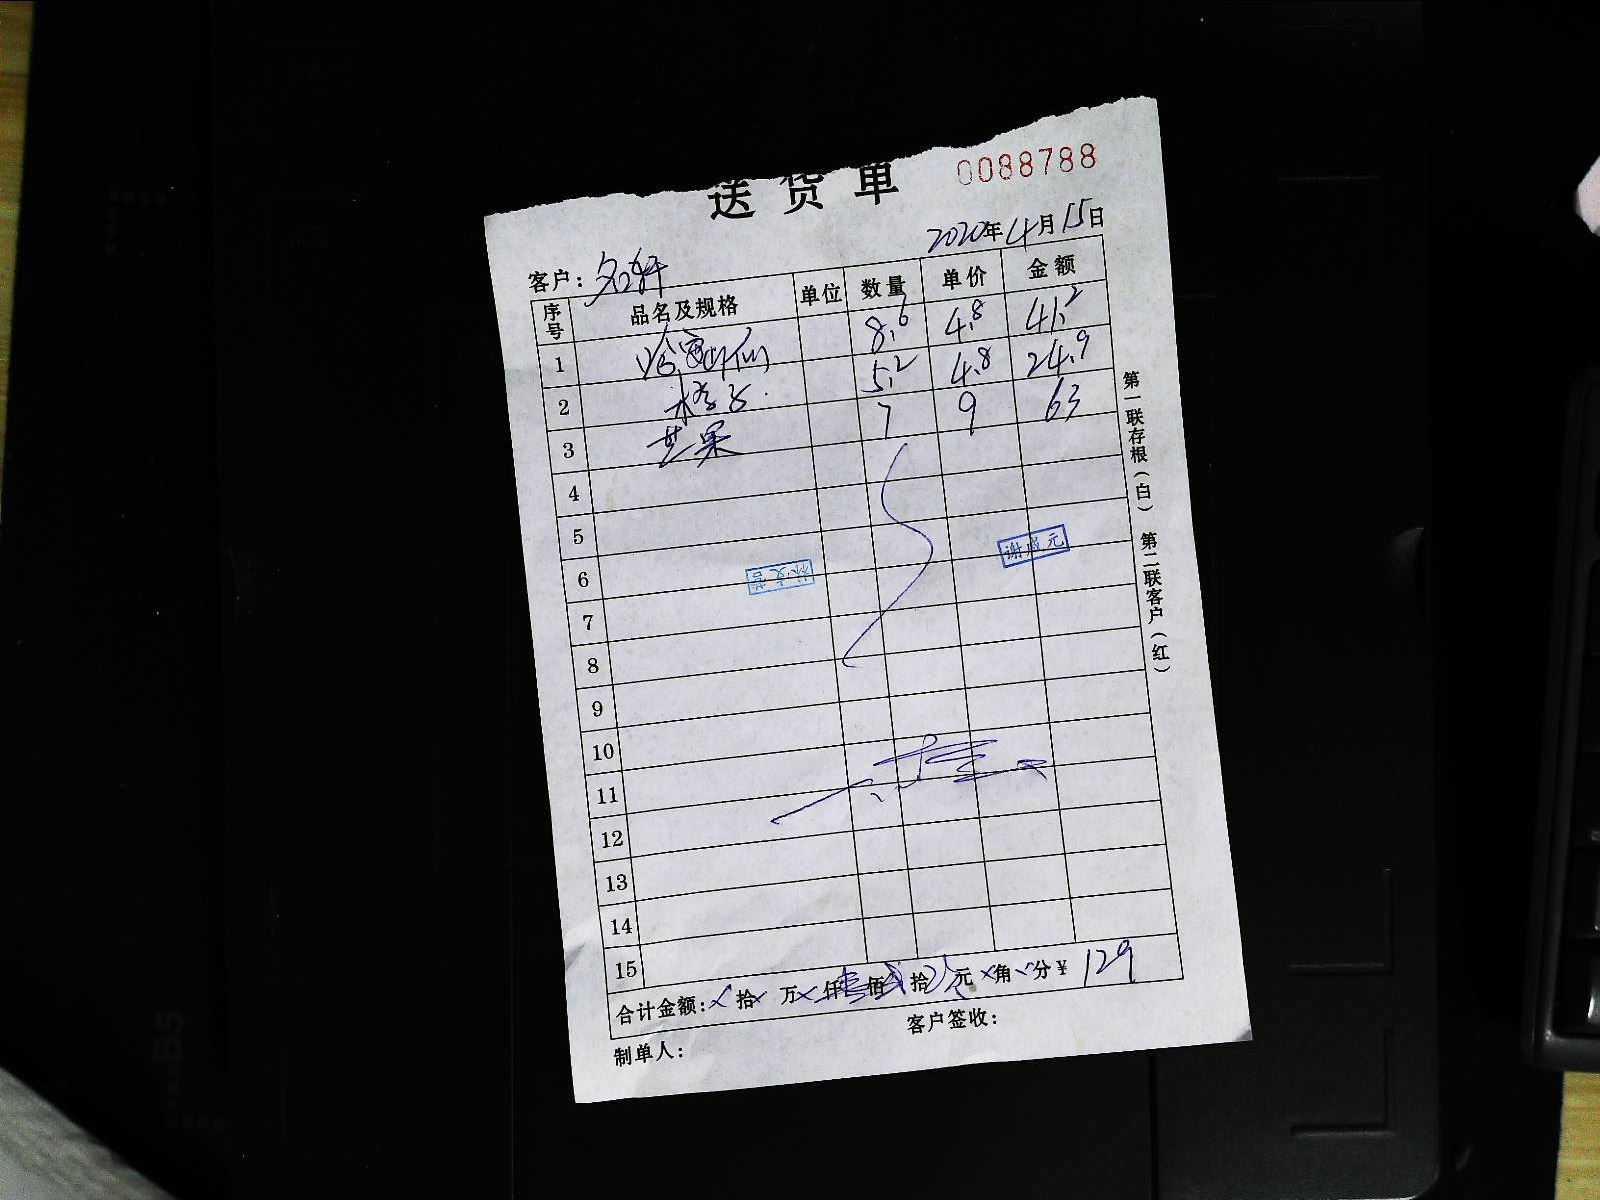 送货单 0088788
2020年4月15日
客户: 名轩
序号 品名及规格 单位 数量 单价 金额
1 哈密瓜 8.6 4.8 41.2
2 橙子 5.2 4.8 24.9
3 芒果 7 9 63
4
5
6
7
8
9
10
11
12
13
14
15
谢咸元
合计金额: 拾 万 仟 壹佰贰拾 元 角 分 ¥ 129
制单人: 客户签收:
第一联存根(白) 第二联客户(红)